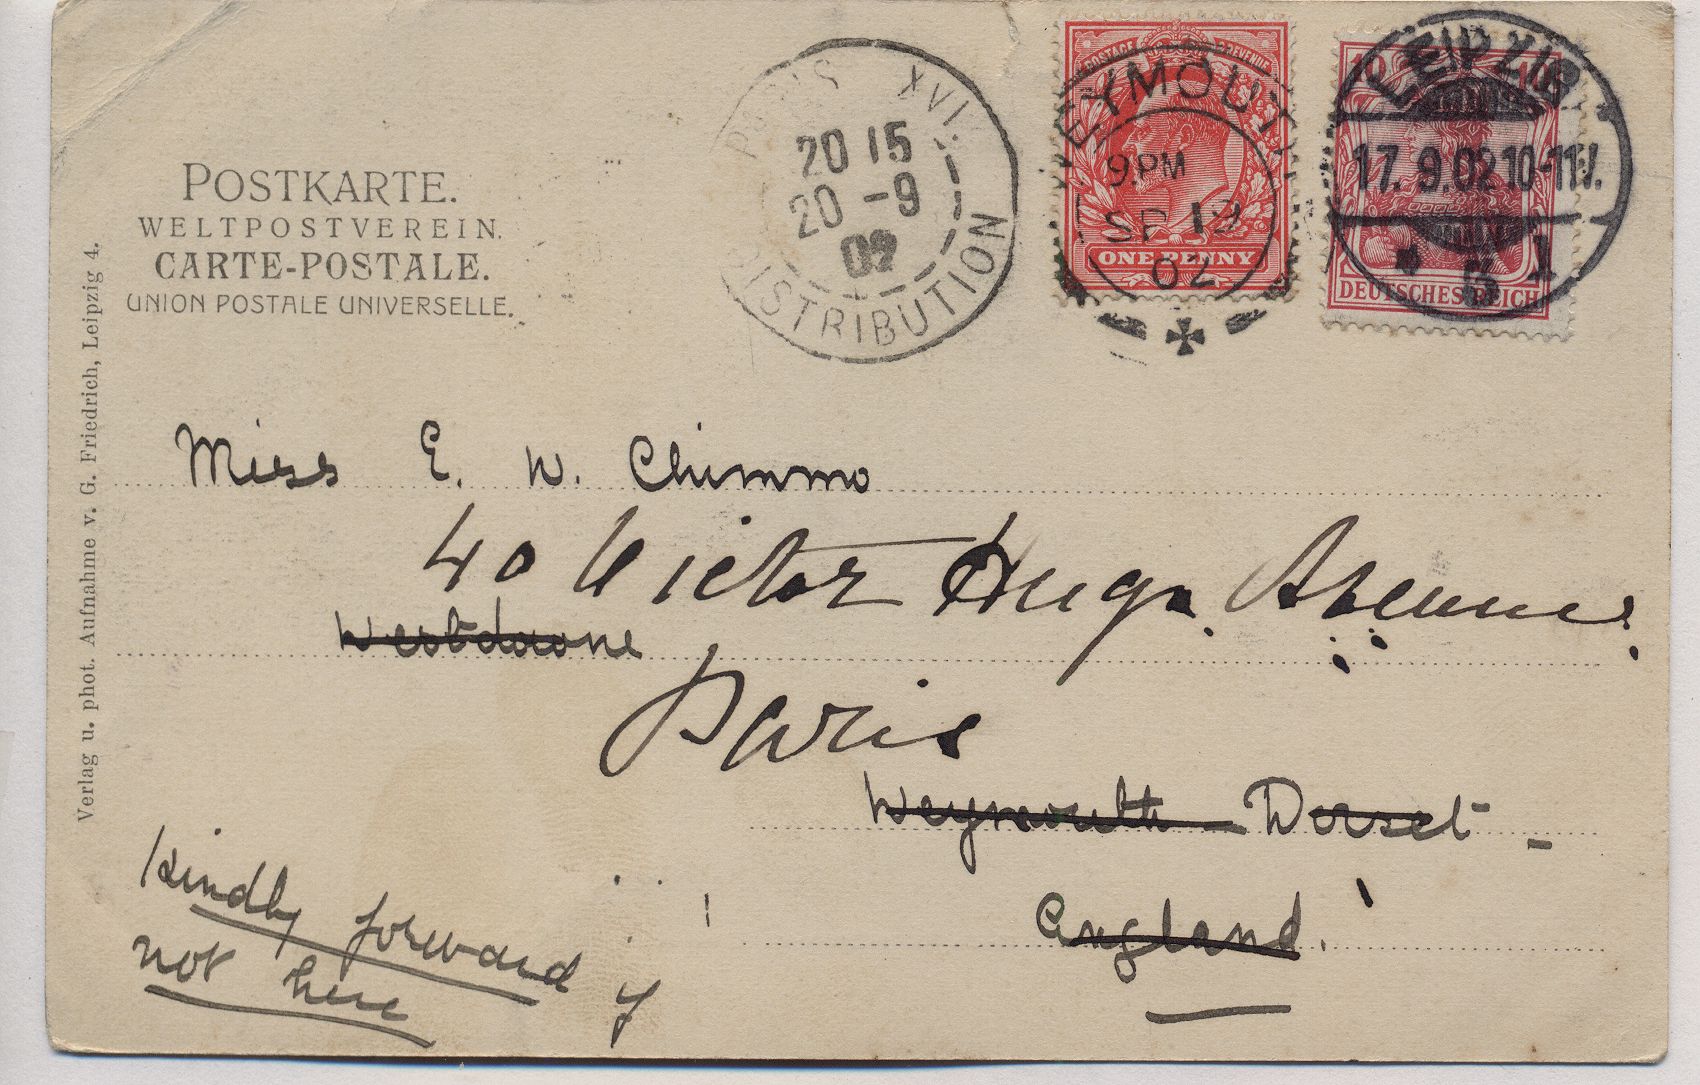 POSTKARTE.
WELTPOSTVEREIN.
CARTE-POSTALE.
UNION POSTALE UNIVERSELLE.
Verlag u. phot. Aufnahme v. G. Friedrich, Leipzig 4.
PARIS XVI
20 15
20 -9
02
DISTRIBUTION
POSTAGE REVENUE
WEYMOUTH
9.PM
SP 19
02
ONE PENNY
10 10
LEIPZIG
17.9.02 10-11V.
* 5 1
DEUTSCHES REICH
Miss E. W. Chimmo
40 Victor Hugo Avenue
Paris
Weymouth Dorset
England.
Kindly forward if
not here